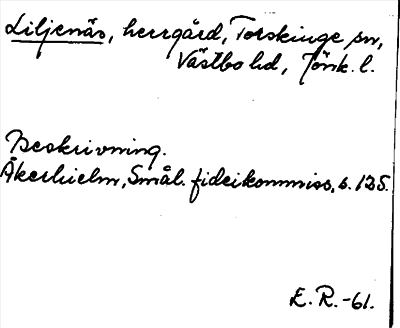 Liljenäs, herrgård, Torskinge sn,
Västbo hd, Jönk. l.
Beskrivning.
Åkerhielm, Smål. fideikommiss, s. 125.
E. R. -61.